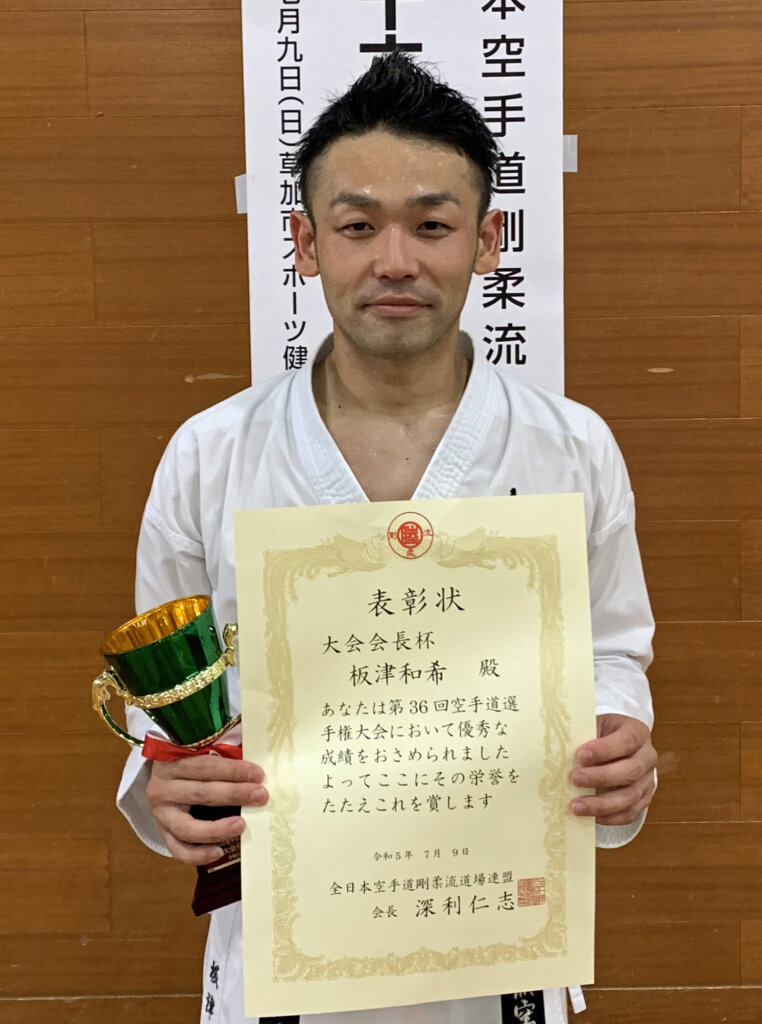 本空手道剛柔流
十
月九日(日)草加市スポーツ健
表彰状
大会会長杯
板津和希 殿
あなたは第36回空手道選
手権大会において優秀な
成績をおさめられました
よってここにその栄誉を
たたえこれを賞します
令和5年 7月 9日
全日本空手道剛柔流道場連盟
会長 深利仁志
板津